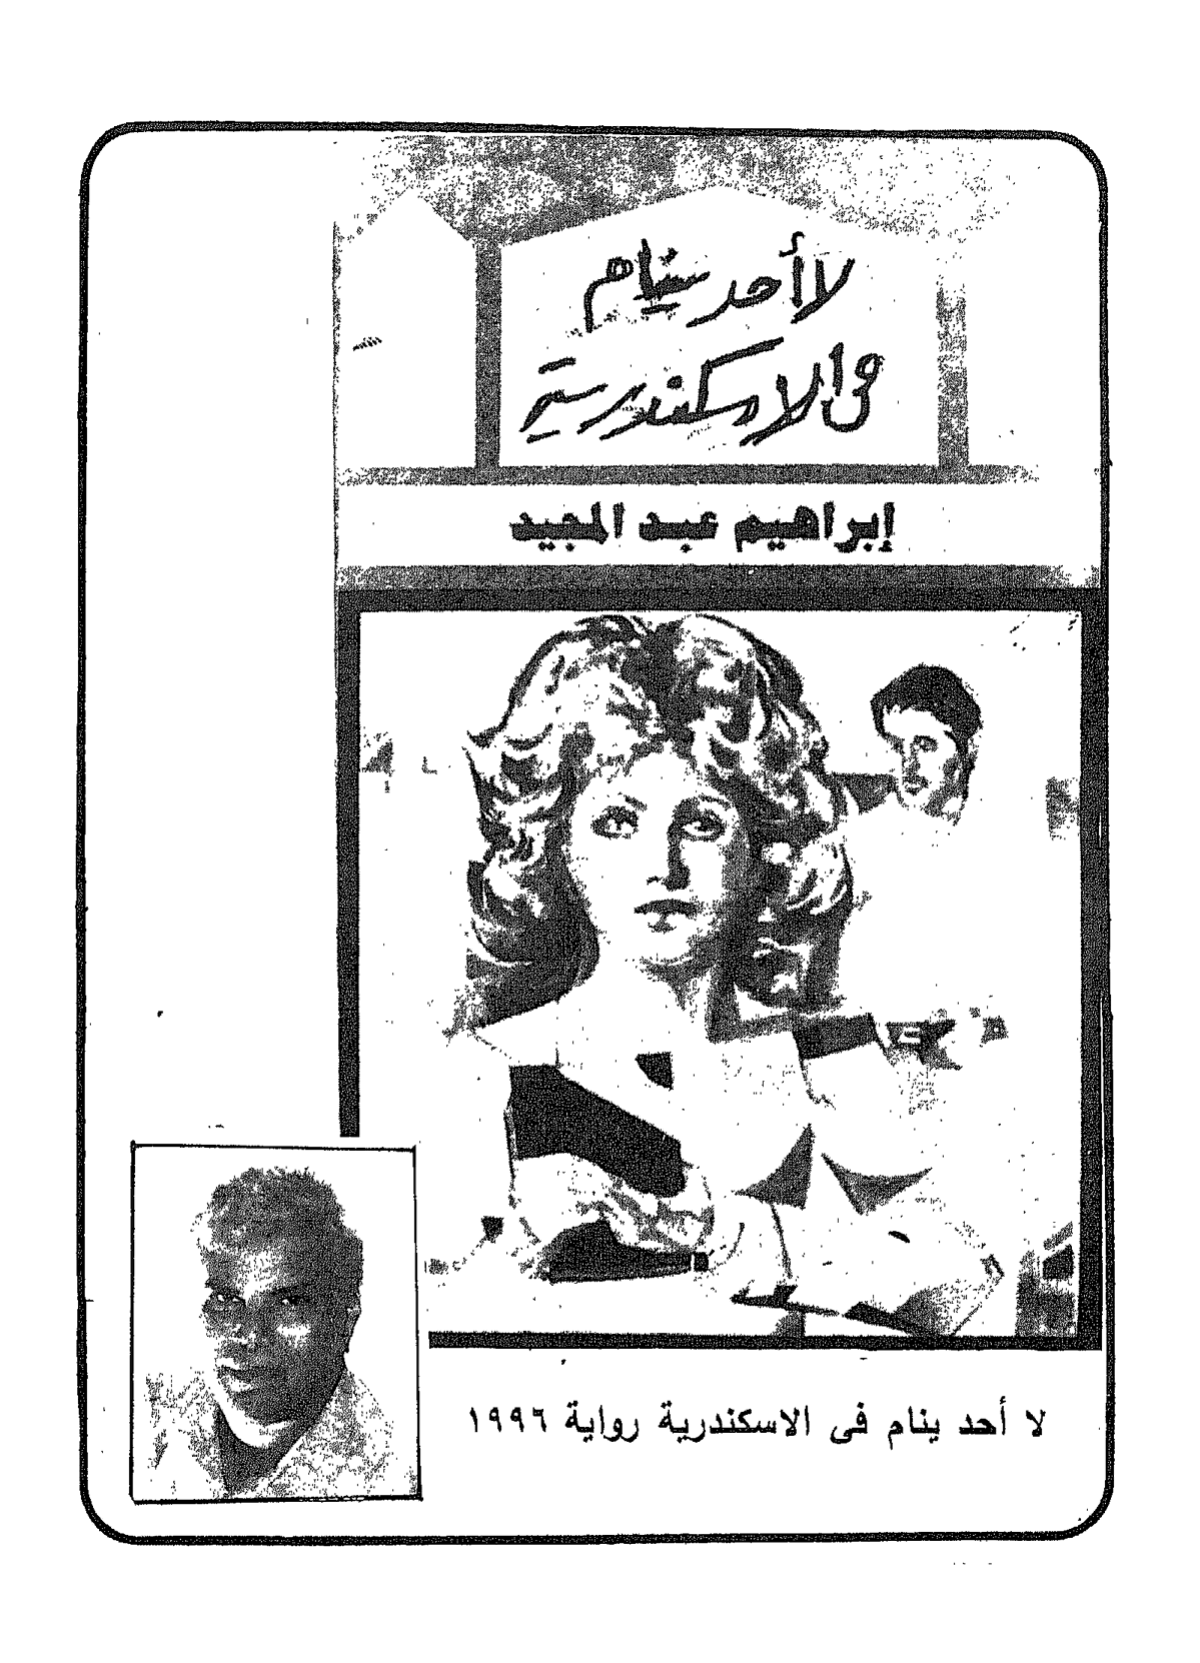 لا أحد ينام
فى الاسكندرية
إبراهيم عبد المجيد
لا أحد ينام فى الاسكندرية رواية ١٩٩٦